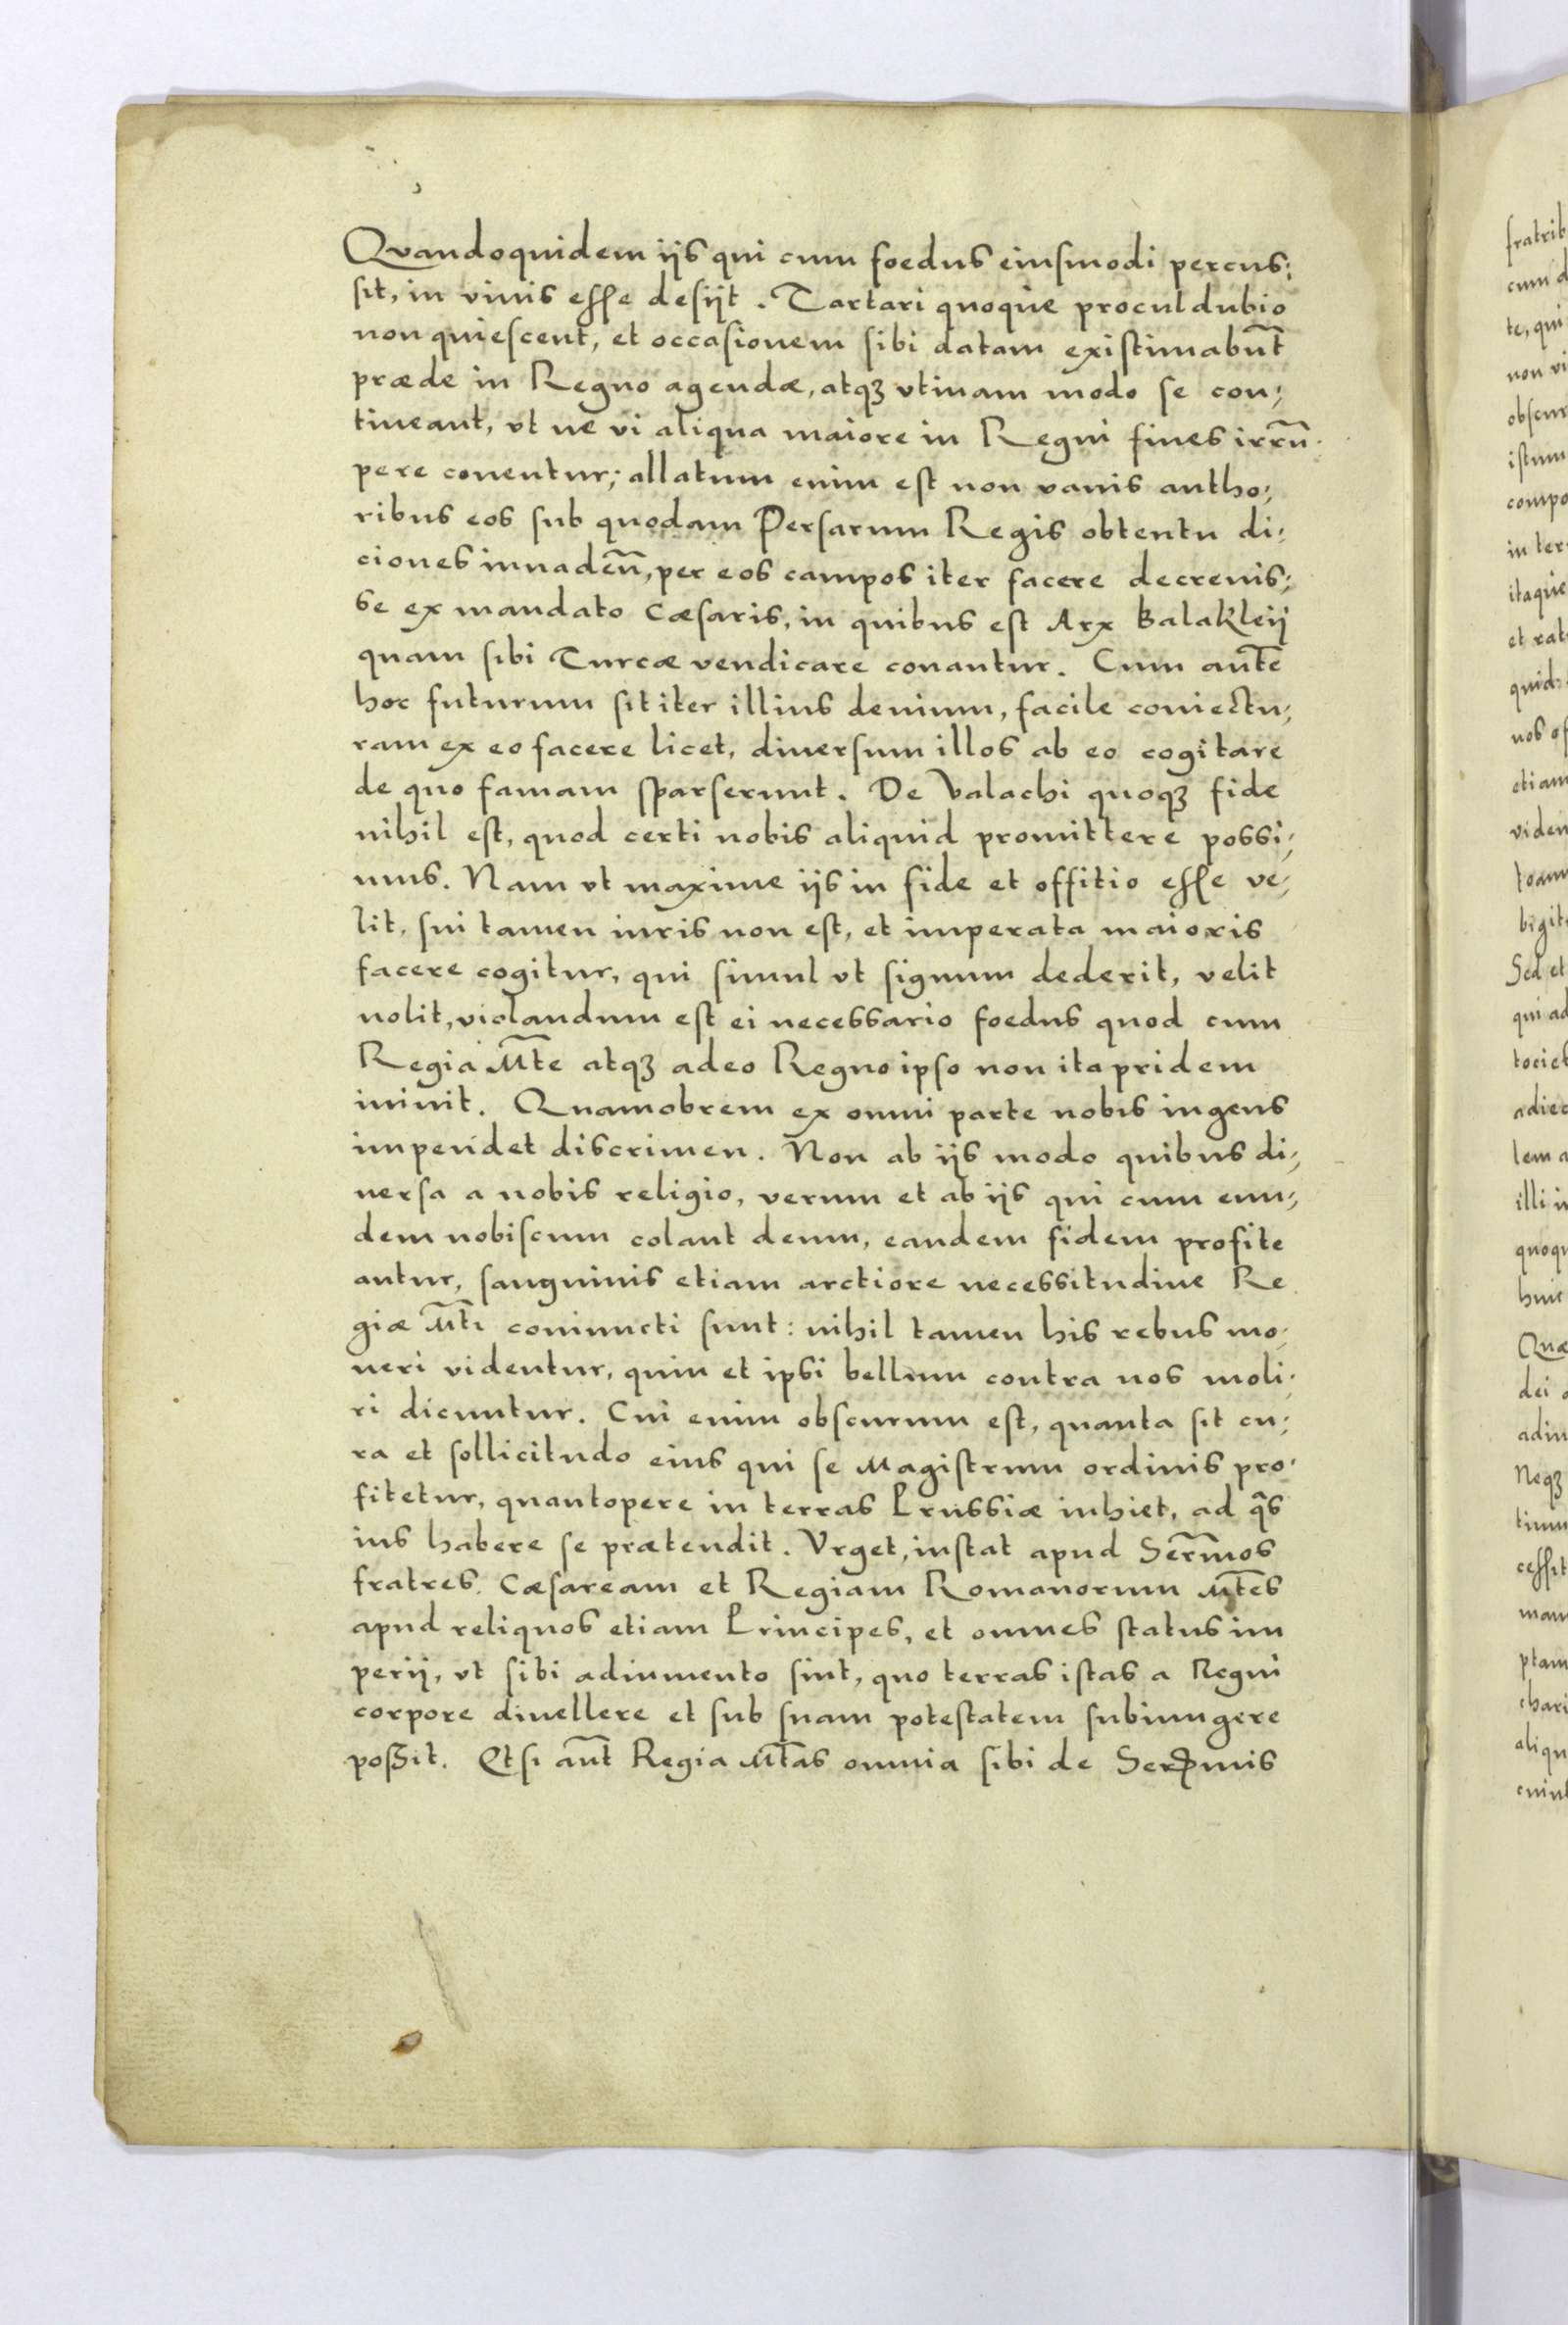 Qvandoquidem ijs qui cum foedus eiusmodi percus;
sit, in viuis esse desijt. Tartari quoque procul dubio
non quiescent, et occasionem sibi datam existimabūt
præde in Regno agendæ, atqꝫ vtinam modo se con;
tineant, vt ne vi aliqua maiore in Regni fines irrū
pere conentur; allatum enim est non vanis autho;
ribus eos sub quodam Persarum Regis obtentu di;
ciones inuadēn, per eos campos iter facere decreuis;
se ex mandato Cæsaris, in quibus est Arx Balakleij
quam sibi Turcæ vendicare conantur. Cum aūte
hoc futurum sit iter illius deuium, facile coniectu;
ram ex eo facere licet, diuersum illos ab eo cogitare
de quo famam sparserunt. De Valachi quoqꝫ fide
nihil est, quod certi nobis aliquid promittere possi;
mus. Nam vt maxime ijs in fide et offitio esse ve;
lit, sui tamen iuris non est, et imperata maioris
facere cogitur, qui simul vt signum dederit, velit
nolit, violandum est ei necessario foedus quod cum
Regia M̄te atqꝫ adeo Regno ipso non ita pridem
iniuit. Quamobrem ex omni parte nobis ingens
impendet discrimen. Non ab ijs modo quibus di;
uersa a nobis religio, verum et ab ijs qui cum eun;
dem nobiscum colant deum, eandem fidem profite
antur, sanguinis etiam arctiore necessitudine Re
giæ M̄ti coniuncti sunt: nihil tamen his rebus mo;
ueri videntur, quin et ipsi bellum contra nos moli;
ri dicuntur. Cui enim obscurum est, quanta sit cu;
ra et sollicitudo eius qui se Magistrum ordinis pro;
fitetur, quantopere in terras Prussiæ inhiet, ad q̄s
ius habere se prætendit. Vrget, instat apud Ser̄mos
fratres. Cæsaream et Regiam Romanorum M̄tes
apud reliquos etiam Principes, et omnes status im
perij, vt sibi adiumento sint, quo terras istas a Regni
corpore diuellere et sub suam potestatem subiungere
poßit. Etsi aūt Regia M̄tas omnia sibi de Ser̄mis
fratrib
cum d
te, qui
non vi
obscur
istum
compo
in ter
itaque
et rat
quid
nos of
etiam
viden
bigit
Sed et
qui ad
tocieb
adiec
lem a
illi in
quoqu
huic
Quæ
dei
adiu
Neqꝫ
cessit
man
ptam
chari
aliqu